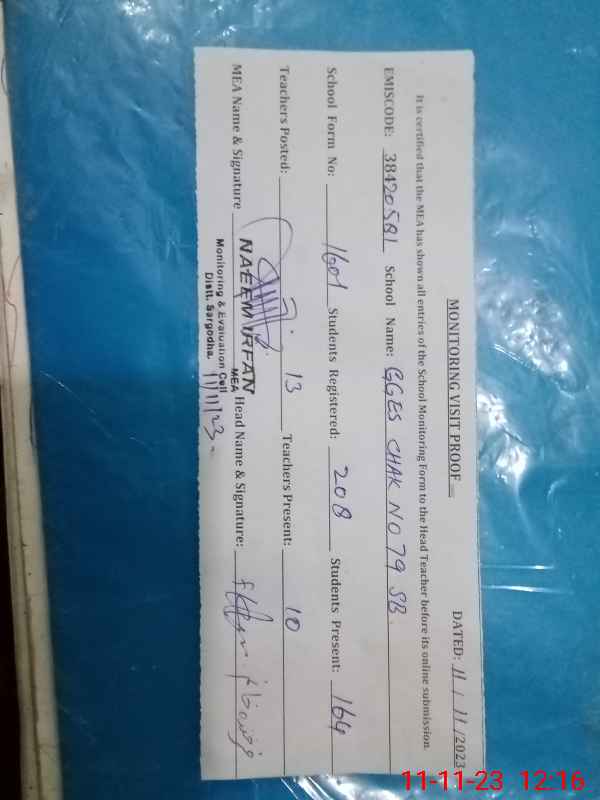 MONITORING VISIT PROOF
DATED: 11 / 11 /2023
It is certified that the MEA has shown all entries of the School Monitoring Form to the Head Teacher before its online submission.
EMISCODE: 38420581 School Name: GGES CHAK NO 79 SB
School Form No: 1601 Students Registered: 208 Students Present: 164
Teachers Posted: 13 Teachers Present: 10
MEA Name & Signature Head Name & Signature:
NAEEM IRFAN
MEA
Monitoring & Evaluation Cell
Distt. Sargodha.
11/11/23
11-11-23 12:16